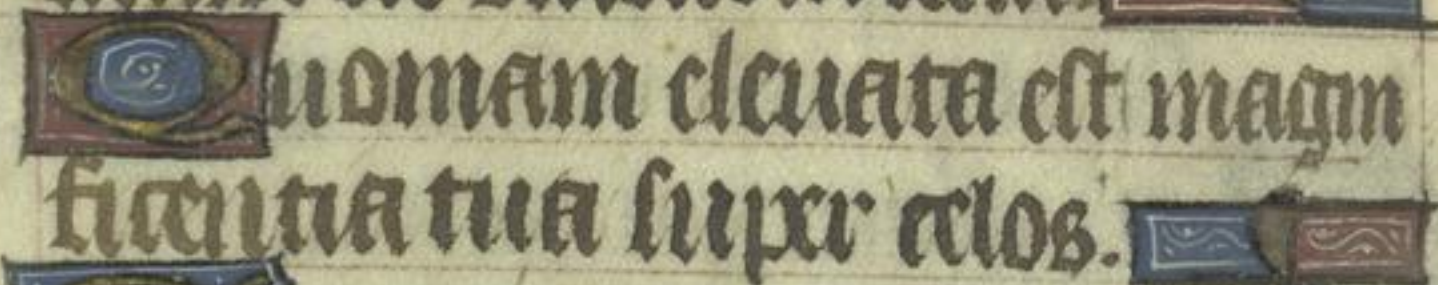 Quoniam eleuata est magni
ficentia tua super celos.